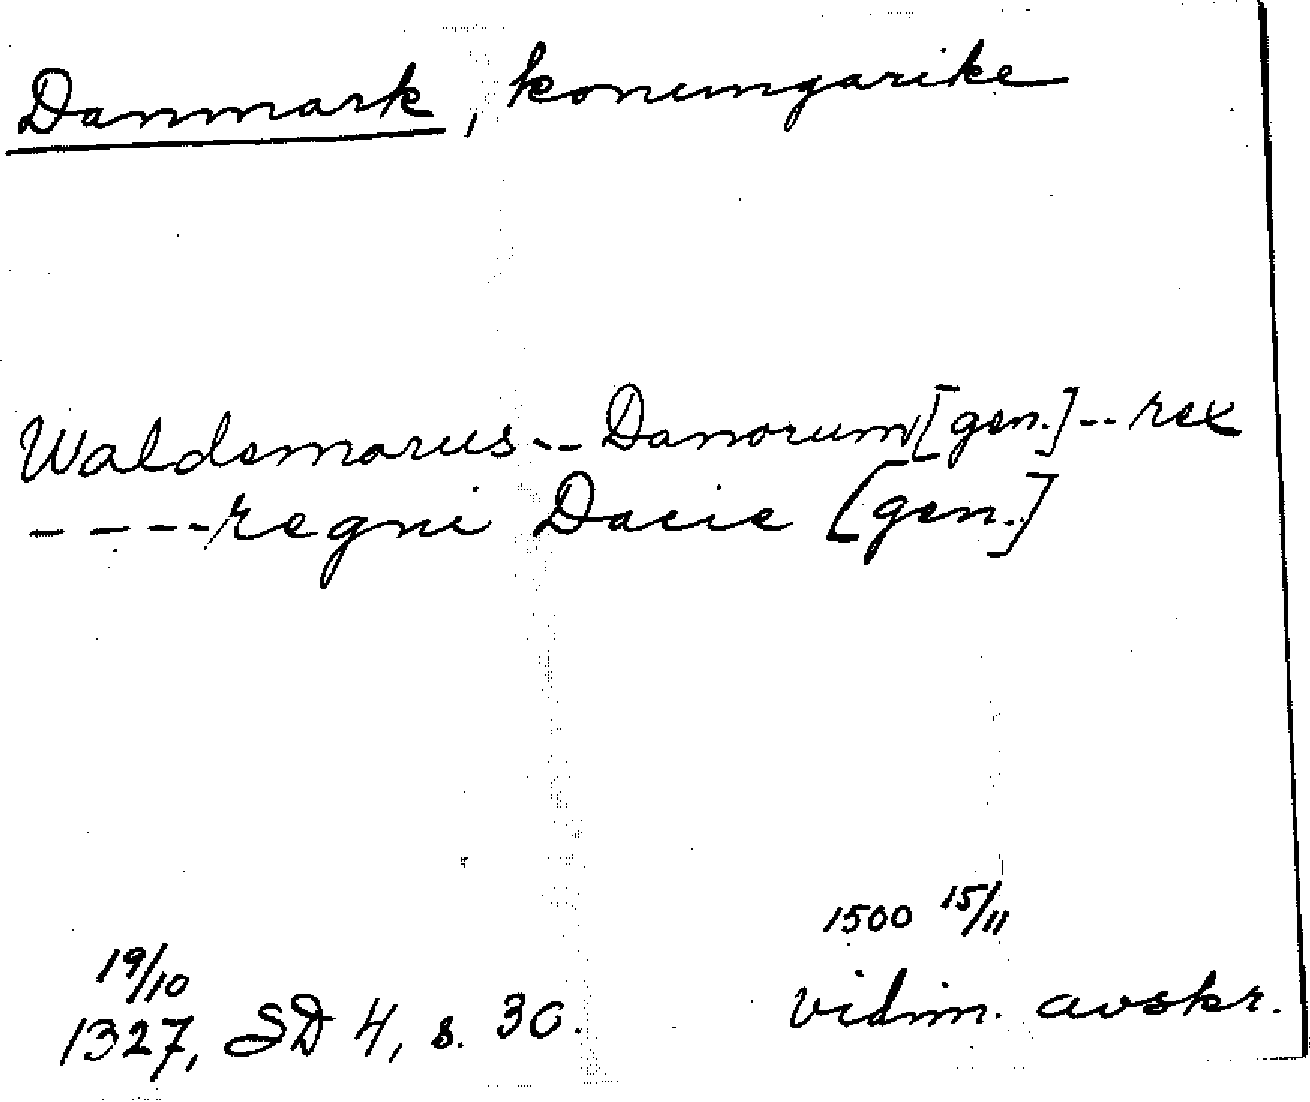 Danmark, konungarike
Waldemarus -- Danorum [gen.] -- rex
---- regni Dacie [gen.]
1500 15/11
19/10
1327, SD 4, s. 30.
vidim. avskr.